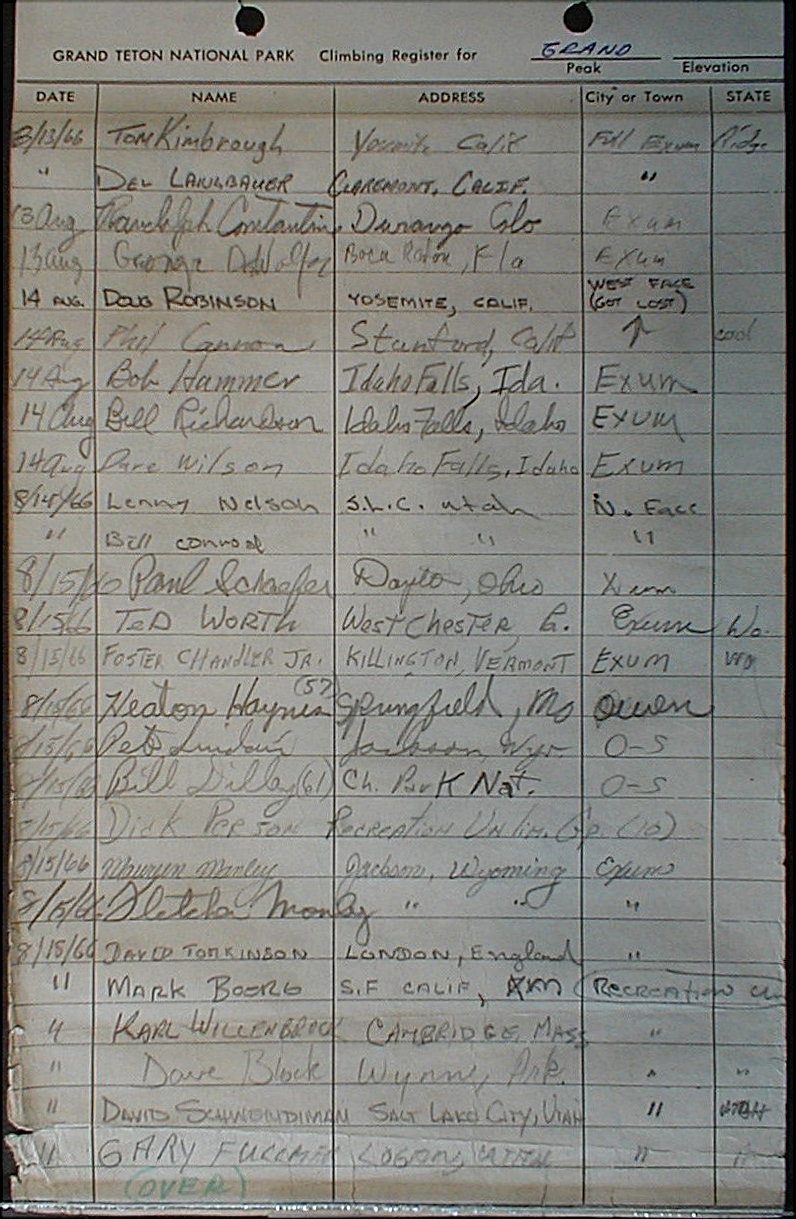 GRAND TETON NATIONAL PARK Climbing Register for GRAND
Peak Elevation
DATE NAME ADDRESS City or Town STATE
8/13/66 Tom Kimbrough Yosemite Calif Full Exum Ridge
" DEL CLAREMONT, CALIF. "
13 Aug Randolph Constantin Durango Colo Exum
13 Aug George Boca Raton, Fla Exum
14 AUG. DOUG ROBINSON YOSEMITE, CALIF. WEST FACE (GOT LOST)
14 Aug Phil Cannon Stanford, Calif ↑ cool
14 Aug Bob Hammer Idaho Falls, Ida. Exum
14 Aug Bill Richardson Idaho Falls, Idaho EXUM
14 Aug Dave Wilson Idaho Falls, Idaho Exum
8/14/66 Lenny Nelson S.L.C. Utah N. Face
" Bill Conrod " " "
8/15/66 Paul Schaefer Ohio
8/15/66 TED WORTH WEST CHESTER, Exum
8/15/66 FOSTER CHANDLER JR. KILLINGTON, VERMONT EXUM
8/15/66 Heaton Haynes (57) Springfield, Mo Owen
8/15/66 Pete Sinclair Jackson, Wyo. O-S
8/15/66 Bill Dilley (61) Ch. Park Nat. O-S
8/15/66 DICK PERSON RECREATION UNLIM. Gp. (10)
8/15/66 Maureen Manley Jackson, Wyoming Exum
8/15/66 Fletcher Manley " " "
8/15/66 DAVID TOMKINSON LONDON, England "
" MARK S.F CALIF, RECREATION
" KARL WILLENBROCK CAMBRIDGE MASS "
" Dave Block Wynne, Ark. " "
" DAVID SCHWENDIMAN SALT LAKE CITY, UTAH "
" GARY " "
(OVER)